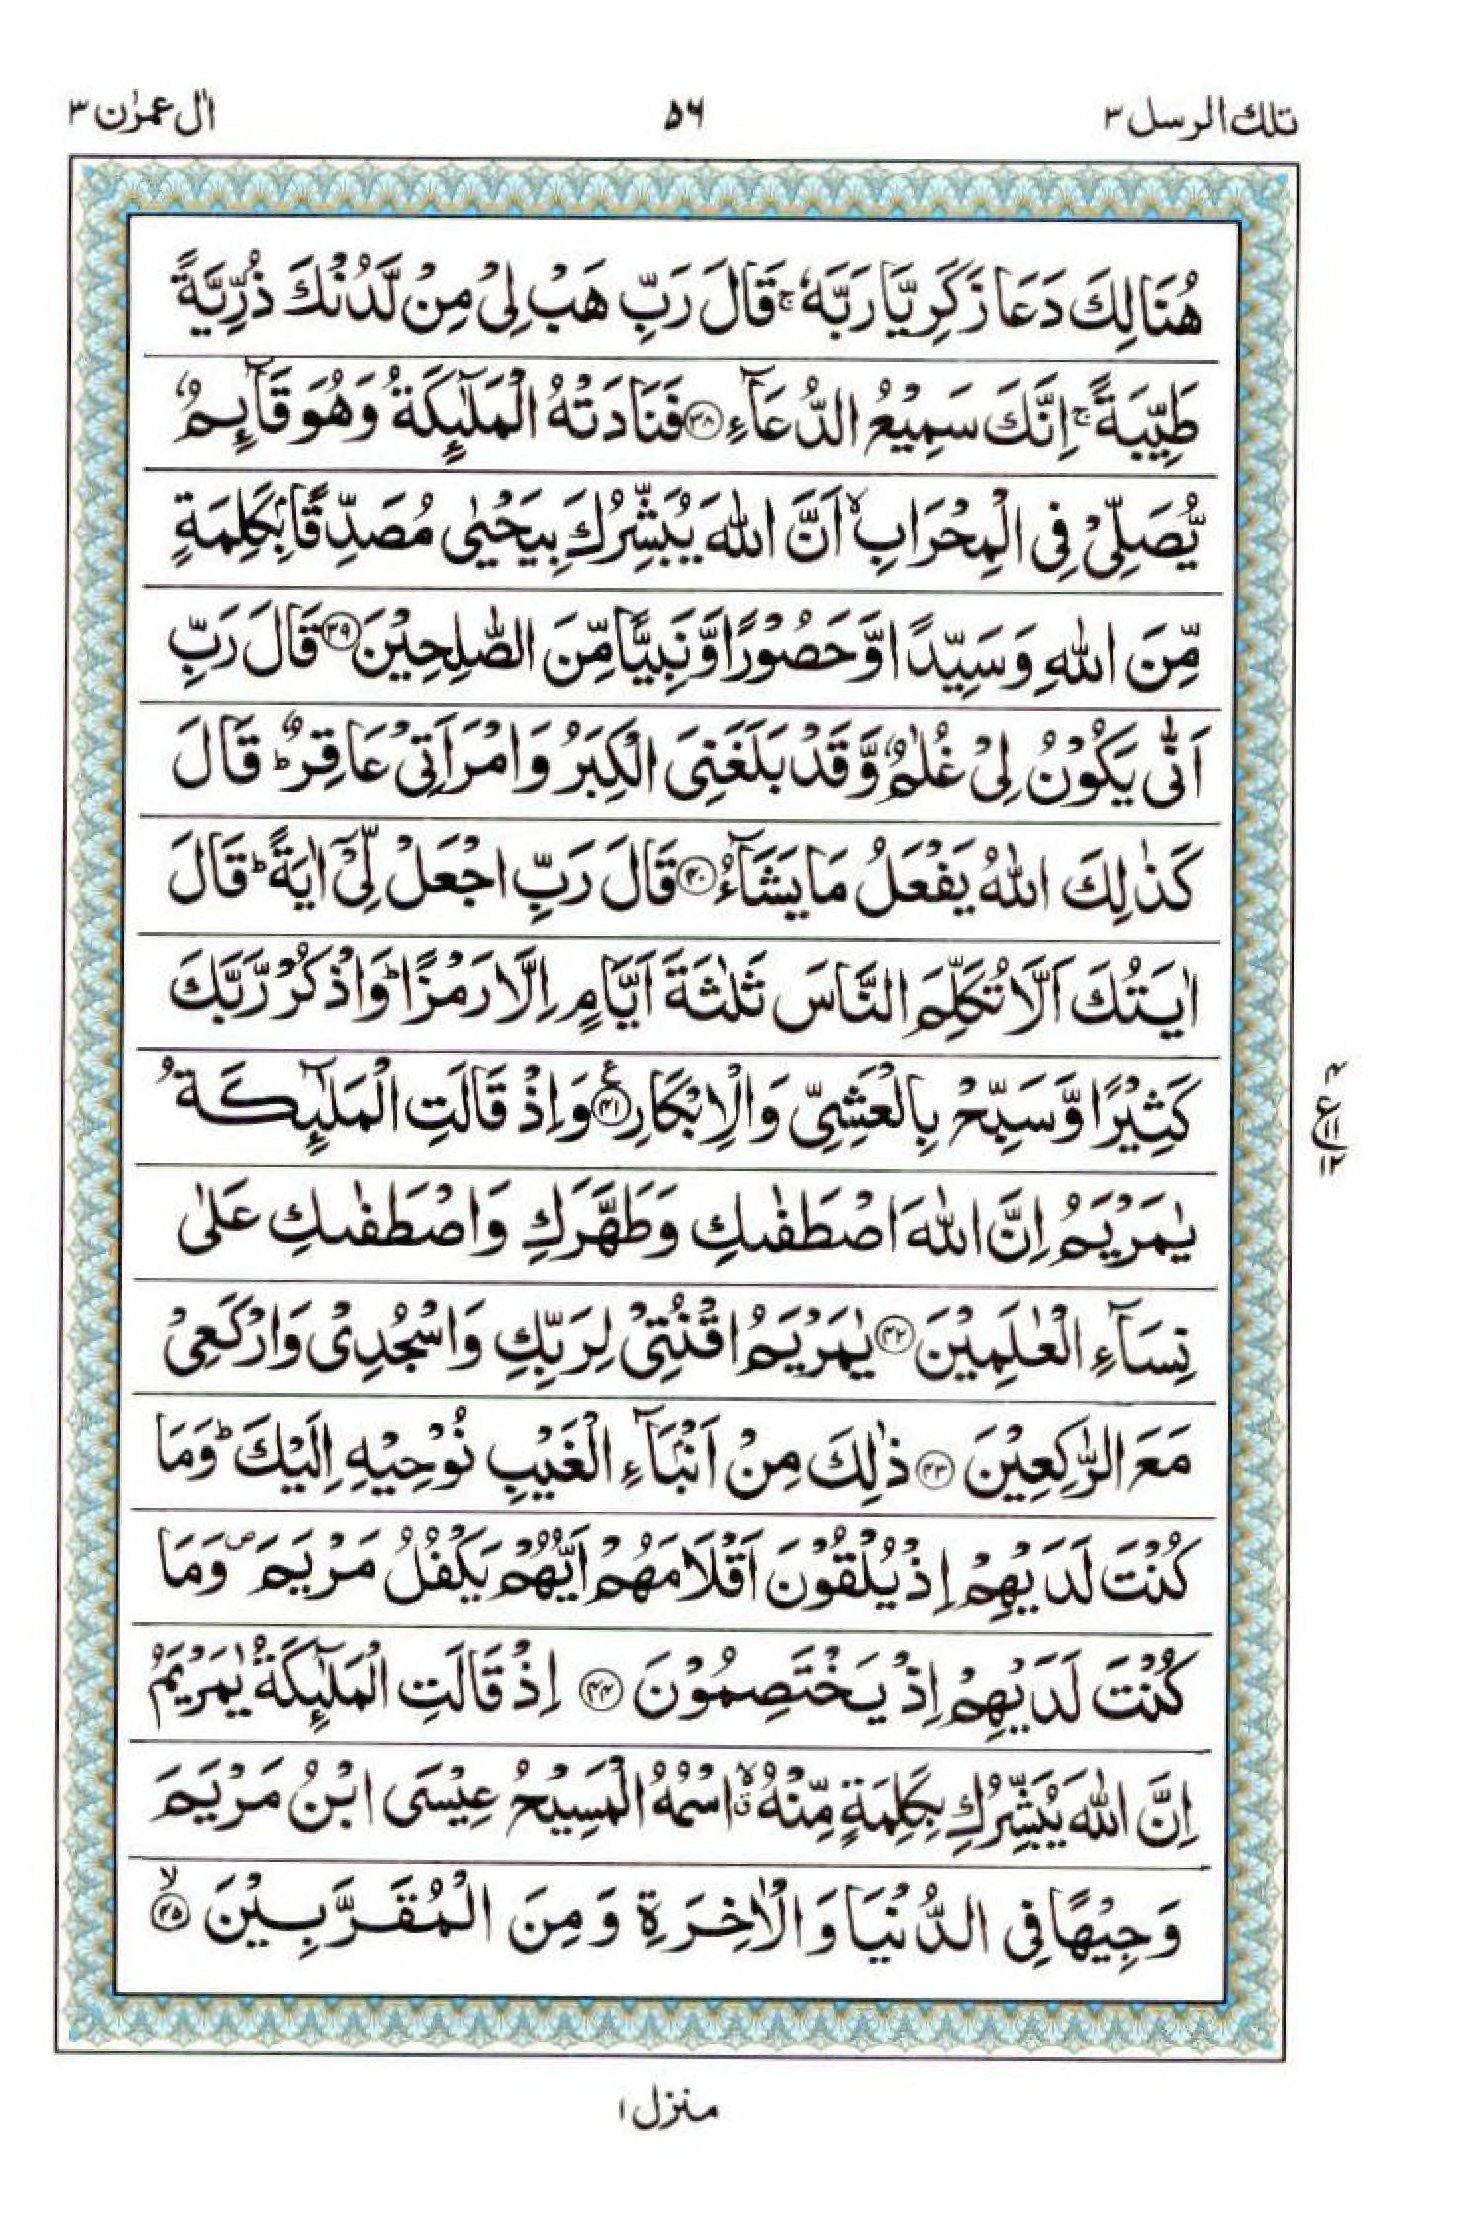 تلك الرسل ٣
٥٦
اٰل عمرٰن ٣
هُنَالِكَ دَعَا زَكَرِيَّا رَبَّهٗ ۚ قَالَ رَبِّ هَبْ لِىْ مِنْ لَّدُنْكَ ذُرِّيَّةً
طَيِّبَةً ۚ اِنَّكَ سَمِيْعُ الدُّعَآءِ ﴿۳۸﴾ فَنَادَتْهُ الْمَلٰٓئِكَةُ وَهُوَ قَآئِمٌ
يُّصَلِّىْ فِى الْمِحْرَابِ ۙ اَنَّ اللّٰهَ يُبَشِّرُكَ بِيَحْيٰى مُصَدِّقًۢا بِكَلِمَةٍ
مِّنَ اللّٰهِ وَسَيِّدًا وَّحَصُوْرًا وَّنَبِيًّا مِّنَ الصّٰلِحِيْنَ ﴿۳۹﴾ قَالَ رَبِّ
اَنّٰى يَكُوْنُ لِىْ غُلٰمٌ وَّقَدْ بَلَغَنِىَ الْكِبَرُ وَامْرَاَتِىْ عَاقِرٌ ؕ قَالَ
كَذٰلِكَ اللّٰهُ يَفْعَلُ مَا يَشَآءُ ﴿۴۰﴾ قَالَ رَبِّ اجْعَلْ لِّىْٓ اٰيَةً ؕ قَالَ
اٰيَتُكَ اَلَّا تُكَلِّمَ النَّاسَ ثَلٰثَةَ اَيَّامٍ اِلَّا رَمْزًا ؕ وَاذْكُرْ رَّبَّكَ
كَثِيْرًا وَّسَبِّحْ بِالْعَشِىِّ وَالْاِبْكَارِ ﴿۴۱﴾ ع وَاِذْ قَالَتِ الْمَلٰٓئِكَةُ
۴
ع
۱۱
۱۲
يٰمَرْيَمُ اِنَّ اللّٰهَ اصْطَفٰىكِ وَطَهَّرَكِ وَاصْطَفٰىكِ عَلٰى
نِسَآءِ الْعٰلَمِيْنَ ﴿۴۲﴾ يٰمَرْيَمُ اقْنُتِىْ لِرَبِّكِ وَاسْجُدِىْ وَارْكَعِىْ
مَعَ الرّٰكِعِيْنَ ﴿۴۳﴾ ذٰلِكَ مِنْ اَنْۢبَآءِ الْغَيْبِ نُوْحِيْهِ اِلَيْكَ ؕ وَمَا
كُنْتَ لَدَيْهِمْ اِذْ يُلْقُوْنَ اَقْلَامَهُمْ اَيُّهُمْ يَكْفُلُ مَرْيَمَ ۪ وَمَا
كُنْتَ لَدَيْهِمْ اِذْ يَخْتَصِمُوْنَ ﴿۴۴﴾ اِذْ قَالَتِ الْمَلٰٓئِكَةُ يٰمَرْيَمُ
اِنَّ اللّٰهَ يُبَشِّرُكِ بِكَلِمَةٍ مِّنْهُ ۙق اسْمُهُ الْمَسِيْحُ عِيْسَى ابْنُ مَرْيَمَ
وَجِيْهًا فِى الدُّنْيَا وَالْاٰخِرَةِ وَمِنَ الْمُقَرَّبِيْنَ ۙ﴿۴۵﴾
منزل ۱